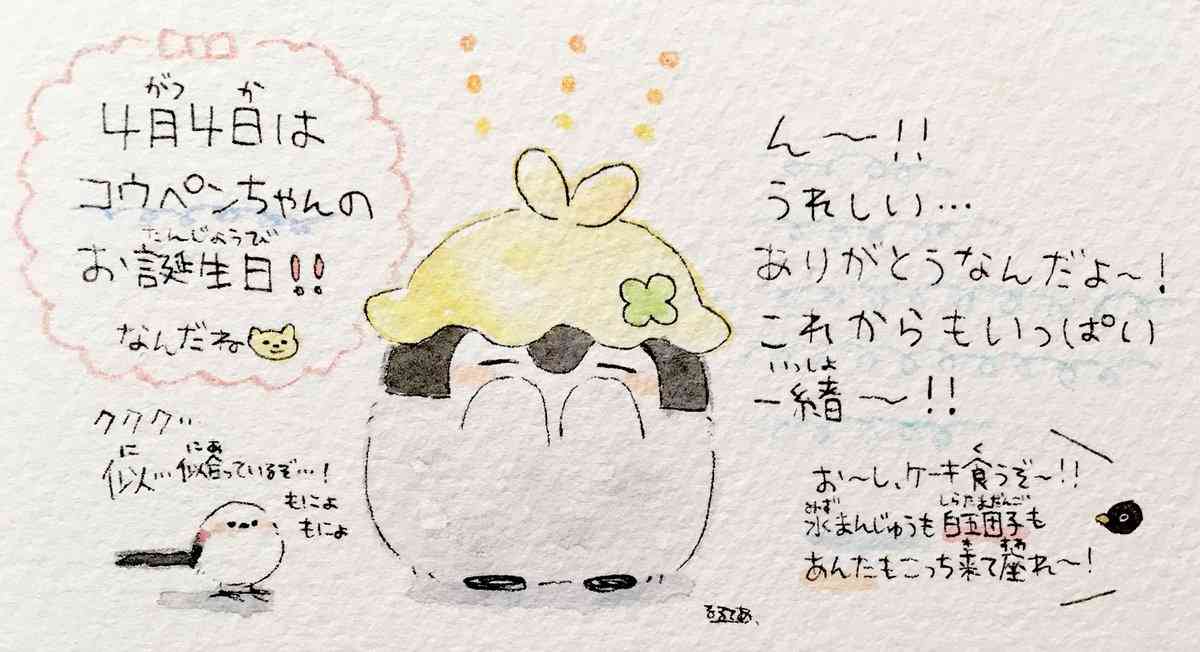 4月4日は
がつ か
コウペンちゃんの
お誕生日!!
たんじょうび
なんだね
ククク…
似…似合っているぞ…!
に にあ
もにょ
もにょ
ん〜!!
うれしい…
ありがとうなんだよ〜!
これからもいっぱい
一緒〜!!
いっしょ
お〜し、ケーキ食うぞ〜!!
く
水まんじゅうも白玉団子も
みず しらたまだんご
あんたもこっち来て座れ〜!
き すわ
るるてあ